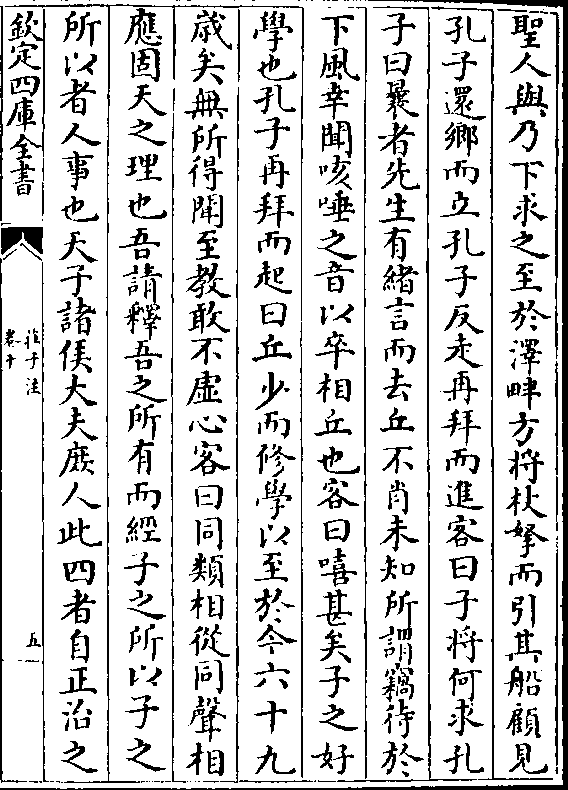 聖人與乃下求之至於澤畔方將杖拏而引其船顧見
孔子還鄉而立孔子反走再拜而進客曰子將何求孔
子曰曩者先生有緒言而去丘不肖未知所謂竊待於
下風幸聞咳唾之音以卒相丘也客曰嘻甚矣子之好
學也孔子再拜而起曰丘少而修學以至於今六十九
歲矣無所得聞至教敢不虛心客曰同類相從同聲相
應固天之理也吾請釋吾之所有而經子之所以子之
所以者人事也天子諸侯大夫庶人此四者自正治之
欽定四庫全書
莊子注
卷十
五